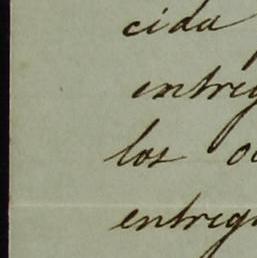 cida
entreg
los o
entreg